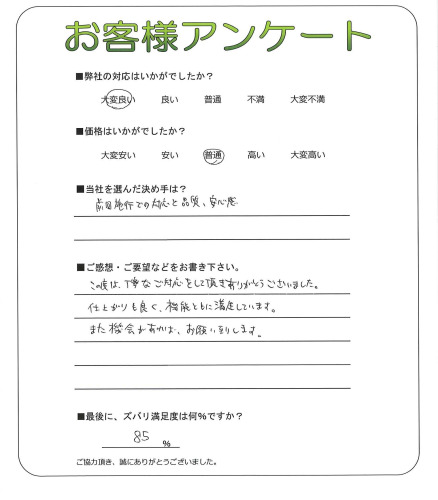 お客様アンケート
■弊社の対応はいかがでしたか?
大変良い 良い 普通 不満 大変不満
■価格はいかがでしたか?
大変安い 安い 普通 高い 大変高い
■当社を選んだ決め手は?
前回施行での対応と品質、安心感
■ご感想・ご要望などをお書き下さい。
この度は、丁寧なご対応をして頂きありがとうございました。
仕上がりも良く、機能ともに満足しています。
また機会があれば、お願いをします。
■最後に、ズバリ満足度は何%ですか?
85 %
ご協力頂き、誠にありがとうございました。